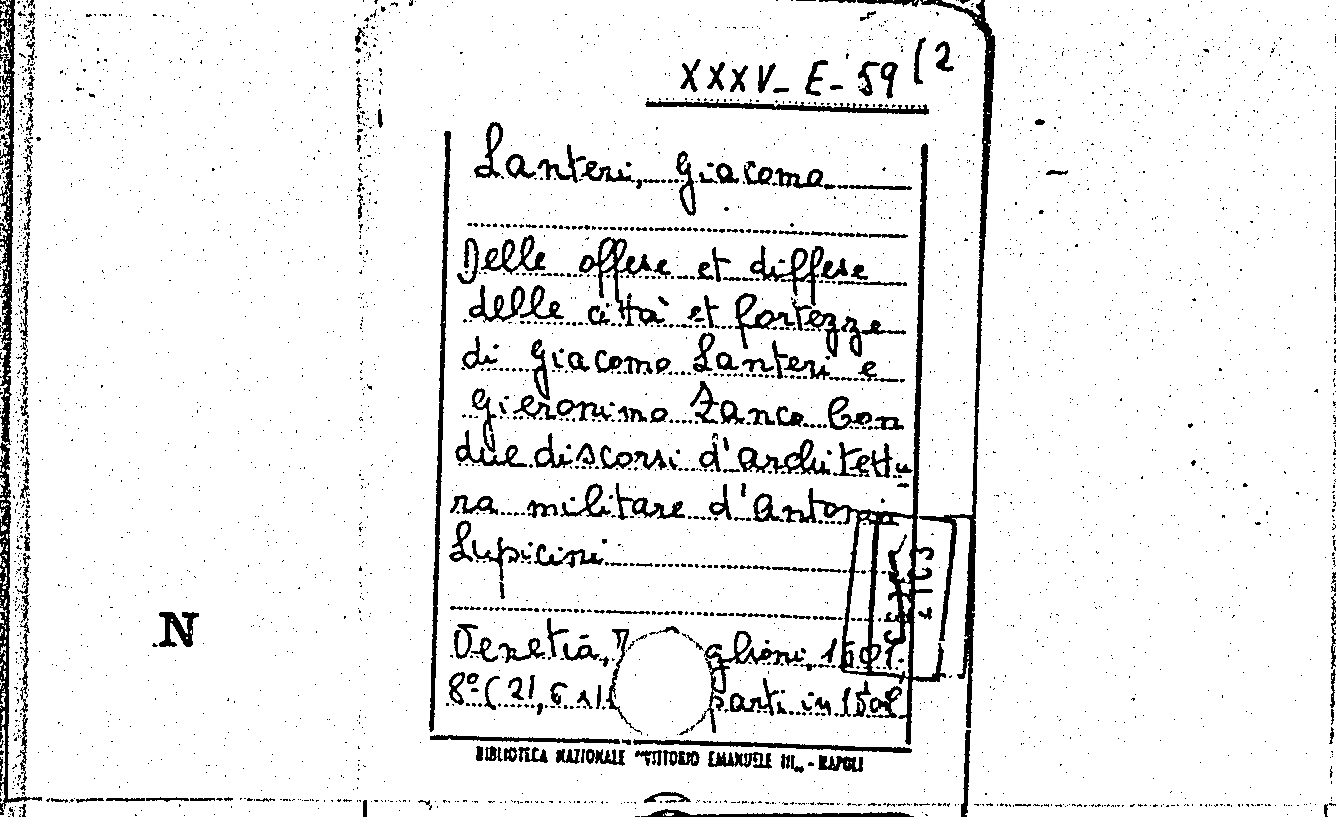 XXXV-E-59 (2
Lanteri, Giacomo
Delle offese et diffese
delle città et fortezze
di Giacomo Lanteri e
Gieronimo Zanco Con
due discorsi d'architettu
ra militare d'Antonio
Lupicini
N
Venetia, glioni, 1601.
8º (21, parti in 1 vol
BIBLIOTECA NAZIONALE "VITTORIO EMANUELE III" - NAPOLI